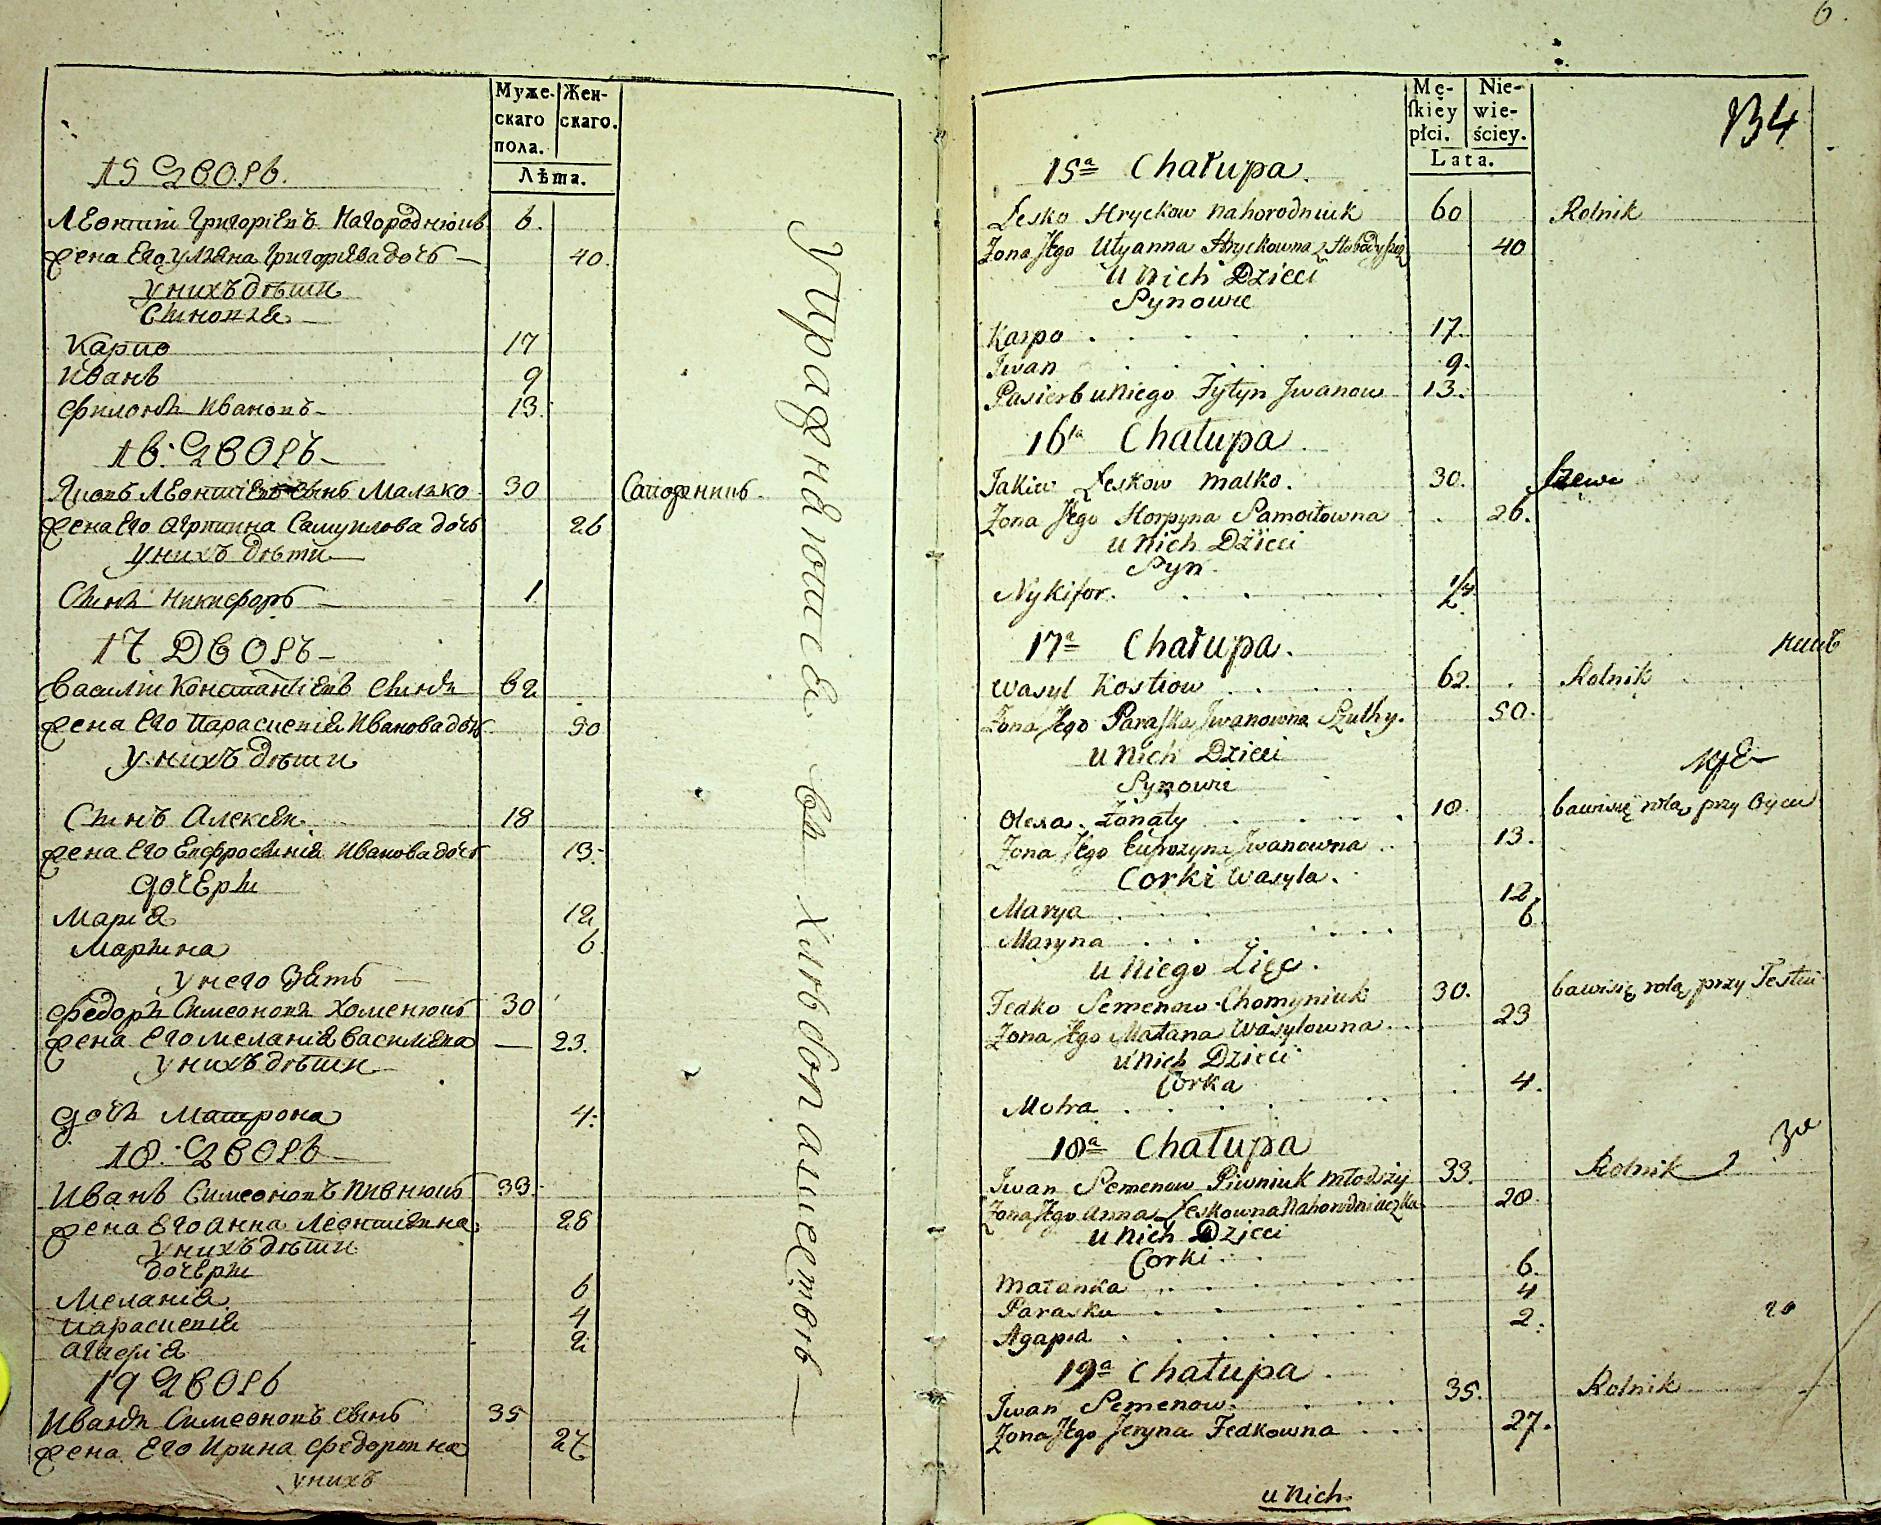 Муже- Жен-
скаго скаго.
пола.
Лѣта.
15 Дворъ.
Леонтій Григоріевъ Нагороднюкъ 6.
Жена Его Уліяна Григорьева дочь — 40.
У нихъ дѣти
Сыновья
Карпо 17
Иванъ 9
Филонъ Ивановъ 13.
16. Дворъ
Яковъ Леонтіевъ сынъ Малько 30 Сапожникъ.
Жена Его Агрипина Самуилова дочь 26
У нихъ дѣти
Сынъ Никифоръ 1.
17 Дворъ
Василій Константіевъ Сынъ 62
Жена Его Параскевія Иванова дочь 50
У нихъ дѣти
Сынъ Алексѣй 18
Жена Его Евфросинія Иванова дочь 13.
Дочери
Марія 12
Марина 6
У него Зять
Федоръ Симеоновъ Хоменюкъ 30
Жена Его Меланія Василіева — 23.
У нихъ дѣти
Дочь Матрона 4.
18. Дворъ
Иванъ Симеоновъ Пивнюкъ 33.
Жена Его Анна Леонтіевна 28
У нихъ дѣти
дочери
Меланія 6
Параскевія 4
Агафія 2
19 Дворъ
Иванъ Симеоновъ сынъ 35
Жена Его Ирина Федоровна 27
У нихъ
Упражняются въ хлѣбопашествѣ —
6.
134
Mę- Nie-
ſkiey wie-
płci. ściey.
Lata.
15a Chałupa.
Lesko Hryckow Nahorodniuk 60 Rolnik
Zona Jego Ulyanna Hryckowna 40
u Nich Dzieci
Synowie
Karpo 17.
Iwan 9.
Pasierb u Niego Fylyn Jwanow 13.
16ta Chałupa
Jakiw Leskow Malko. 30. Szewc
Zona Jego Horpyna Samoiłowna 26.
u Nich Dzieci
Syn.
Nykifor. 1/2
17a Chałupa.
Wasyl Kostiow 62. Rolnik
Zona Jego Paraska Jwanowna Szulhy. 50.
u Nich Dzieci
Synowie
Olexa. Zonaty 18. bawi się rolą przy Oycu
Zona Jego Euprozyna Jwanowna 13.
Corki Wasyla.
Marya 12
Maryna 6
u Niego Zięć.
Fedko Semenow Chomyniuk 30. bawi się rolą przy Teściu
Zona Jego Małana Wasylowna 23
u Nich Dzieci
Corka
Motra 4.
18a Chałupa
Jwan Semenow Piwniuk młodszy 33. Rolnik
Zona Jego Anna Leskowna Nahorodniaczka 28.
u Nich Dzieci
Corki
Małanka 6.
Paraska 4
Agapia 2.
19a Chałupa
Jwan Semenow. 35. Rolnik
Zona Jego Jeryna Fedkowna 27.
u Nich